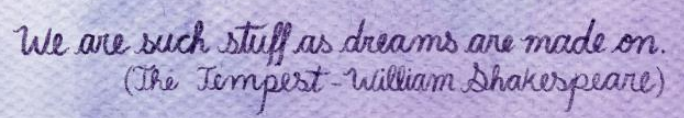 We are such stuff as dreams are made on.
(The Tempest - William Shakespeare)